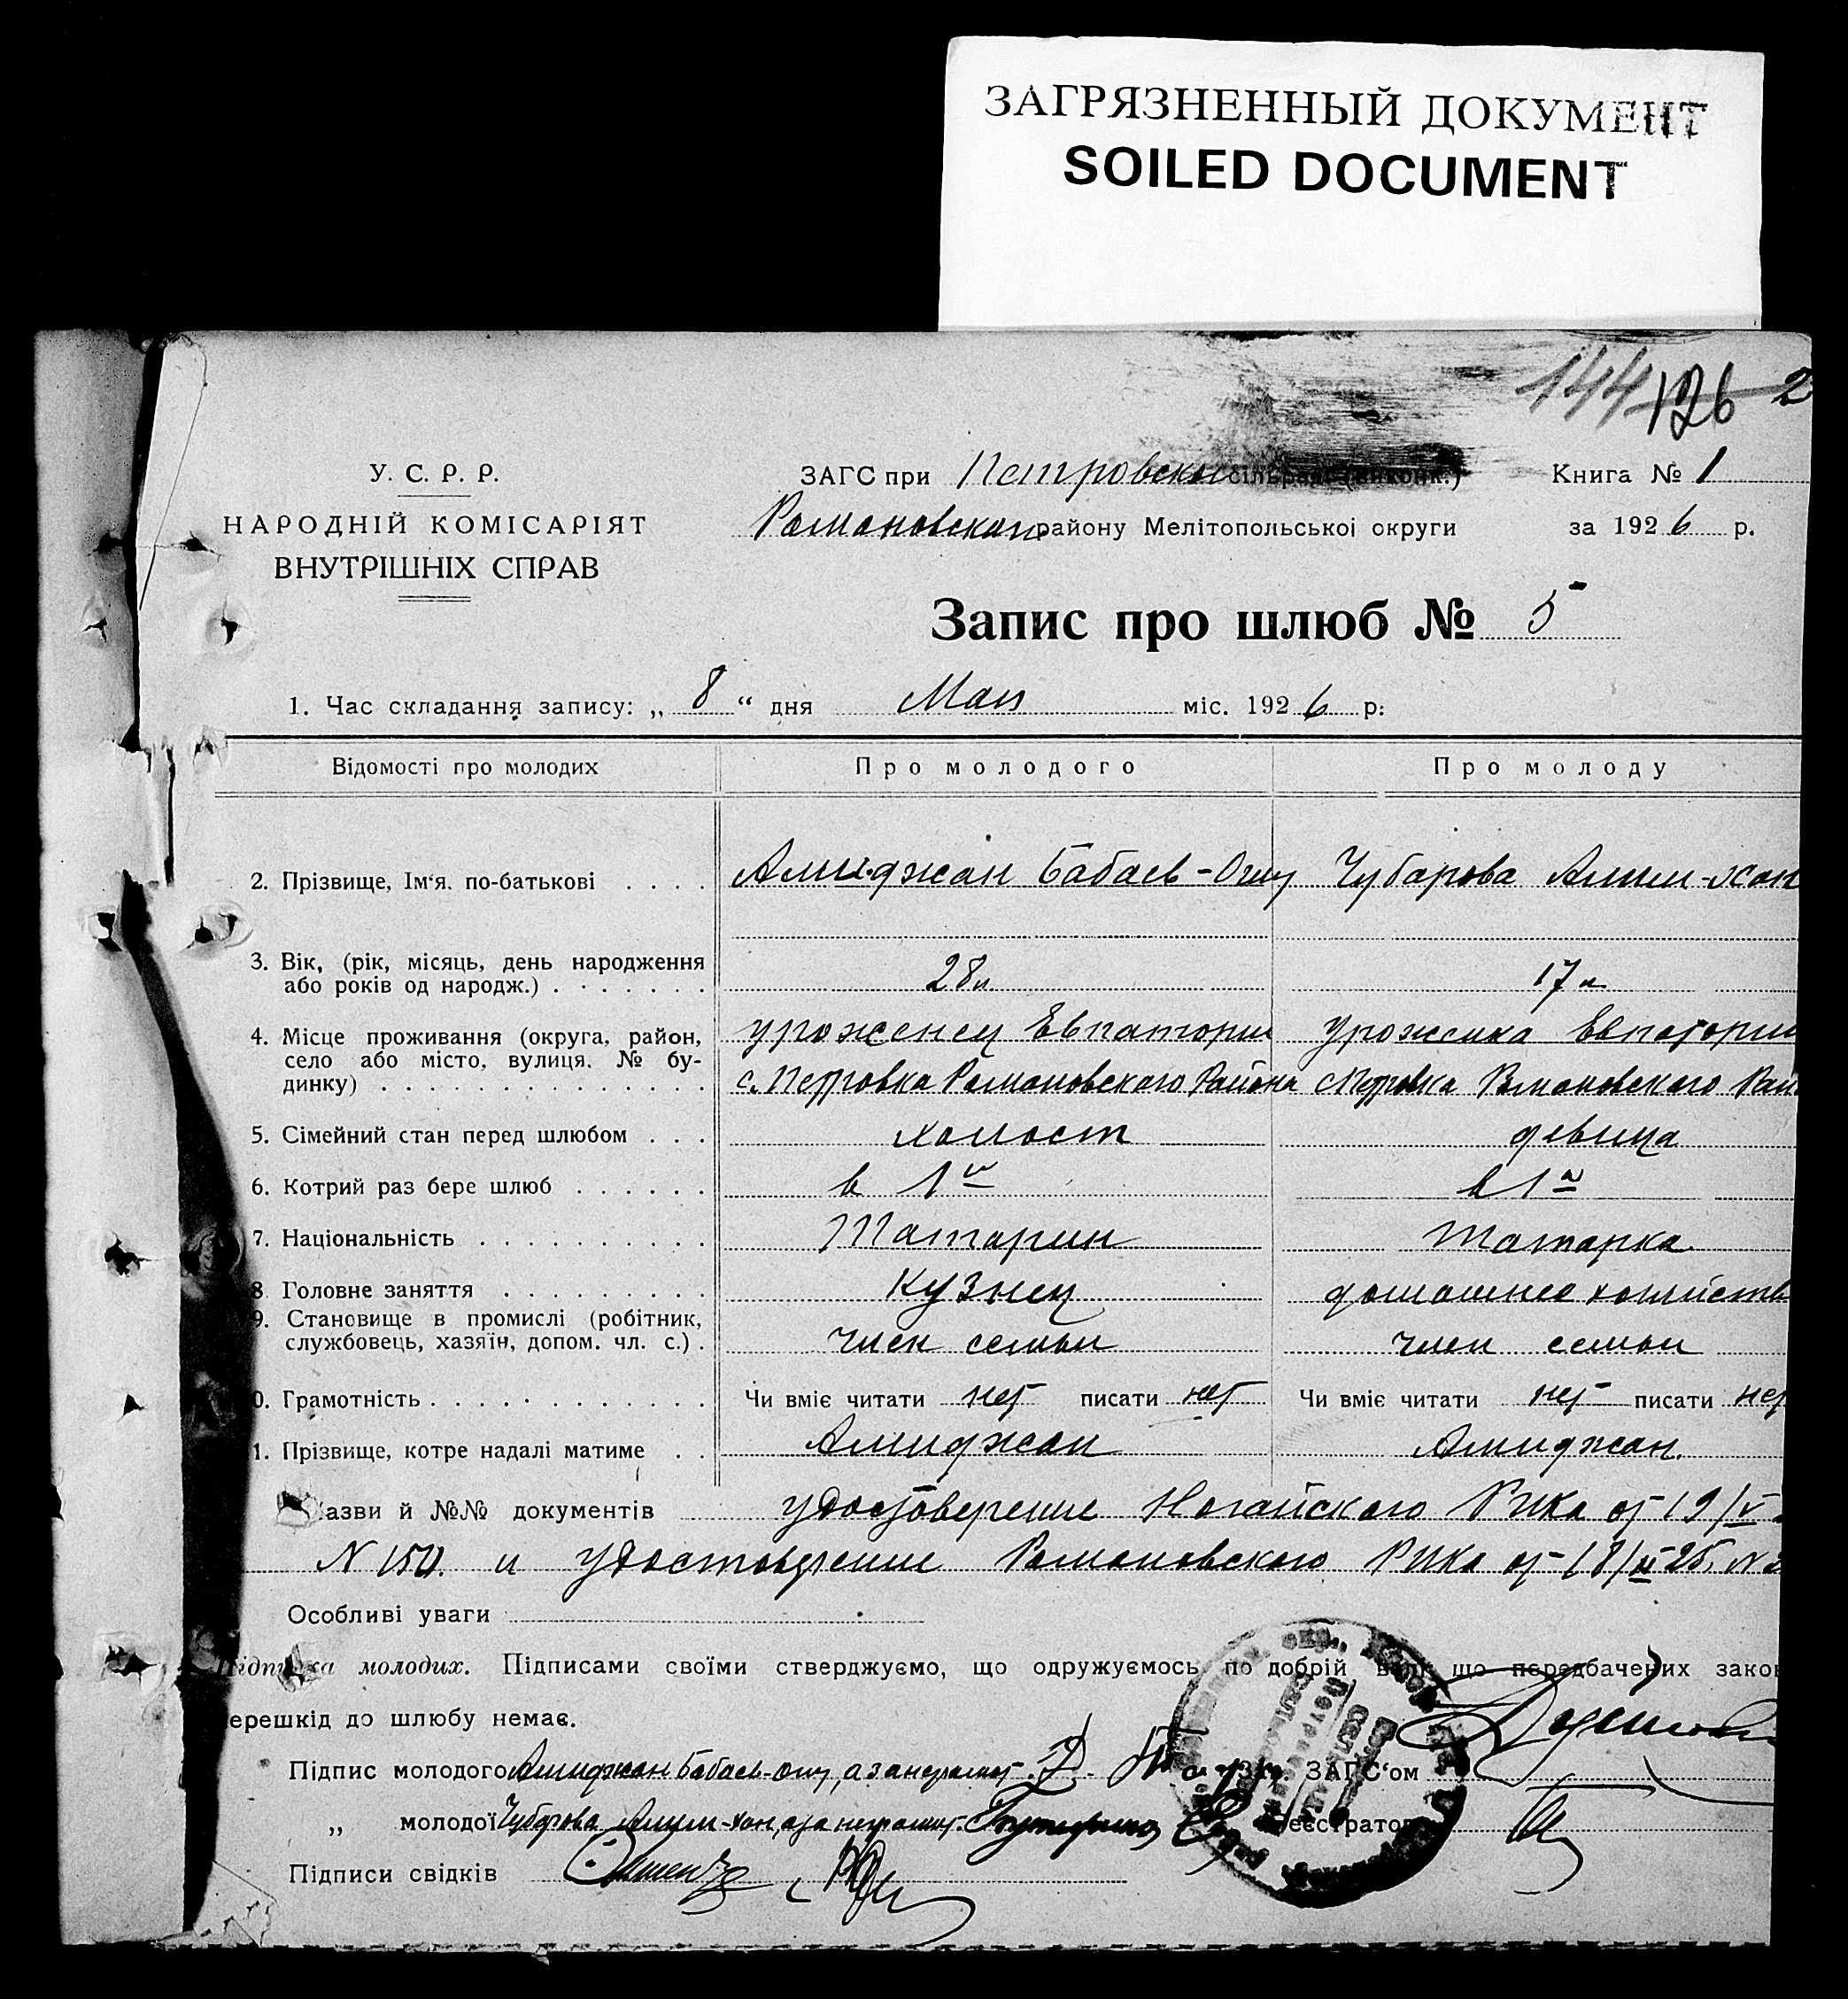 ЗАГРЯЗНЕННЫЙ ДОКУМЕНТ
SOILED DOCUMENT
144 126 2
У. С. Р. Р.
НАРОДНІЙ КОМІСАРІЯТ
ВНУТРІШНІХ СПРАВ
ЗАГС при Петровском сільраді (виконк.) Книга № 1
Романовского району Мелітопольської округи за 1926 р.
Запис про шлюб № 5
1. Час складання запису: „ 8 “ дня Мая міс. 1926 р:
Відомості про молодих Про молодого Про молоду
2. Прізвище, Ім‘я. по-батькові . . . . Амиджан Бабаев-Оглу Чубарова Алим-хан
3. Вік, (рік, місяць, день народження
або років од народж.) . . . . . . . 28 л 17 л
4. Місце проживання (округа, район, уроженец Евпатории Уроженка Евпатории
село або місто, вулиця. № бу-
динку) . . . . . . . . . . . . . . с. Петровка Романовского Района с Петровка Романовского Рай
5. Сімейний стан перед шлюбом . . . холост девица
6. Котрий раз бере шлюб . . . . . . в 1й в 1й
7. Національність . . . . . . . . . . Татарин татарка
8 Головне заняття . . . . . . . . . кузнец домашнее хозяйств
9. Становище в промислі (робітник,
службовець, хазяїн, допом. чл. с.) . член семьи член семьи
0. Грамотність . . . . . . . . . . . Чи вміє читати нет писати нет Чи вміє читати нет писати нет
1. Прізвище, котре надалі матиме . . Амиджан Амиджан.
азви й №№ документів удостоверение Ногайского РИКа от 19/V
N 150. и удостоверение Романовского РИКа от 18/ 25, N
Особливі уваги
Підписка молодих. Підписами своїми стверджуємо, що одружуємось по добрій волі, що передбачених закон
ерешкід до шлюбу немає.
Підпис молодого Амиджан Бабаев-оглу, а за неграмот. ЗАГС‘ом
„ молодої Чубарова Алим-хан, а за неграмот. еєстратор
Підписи свідків